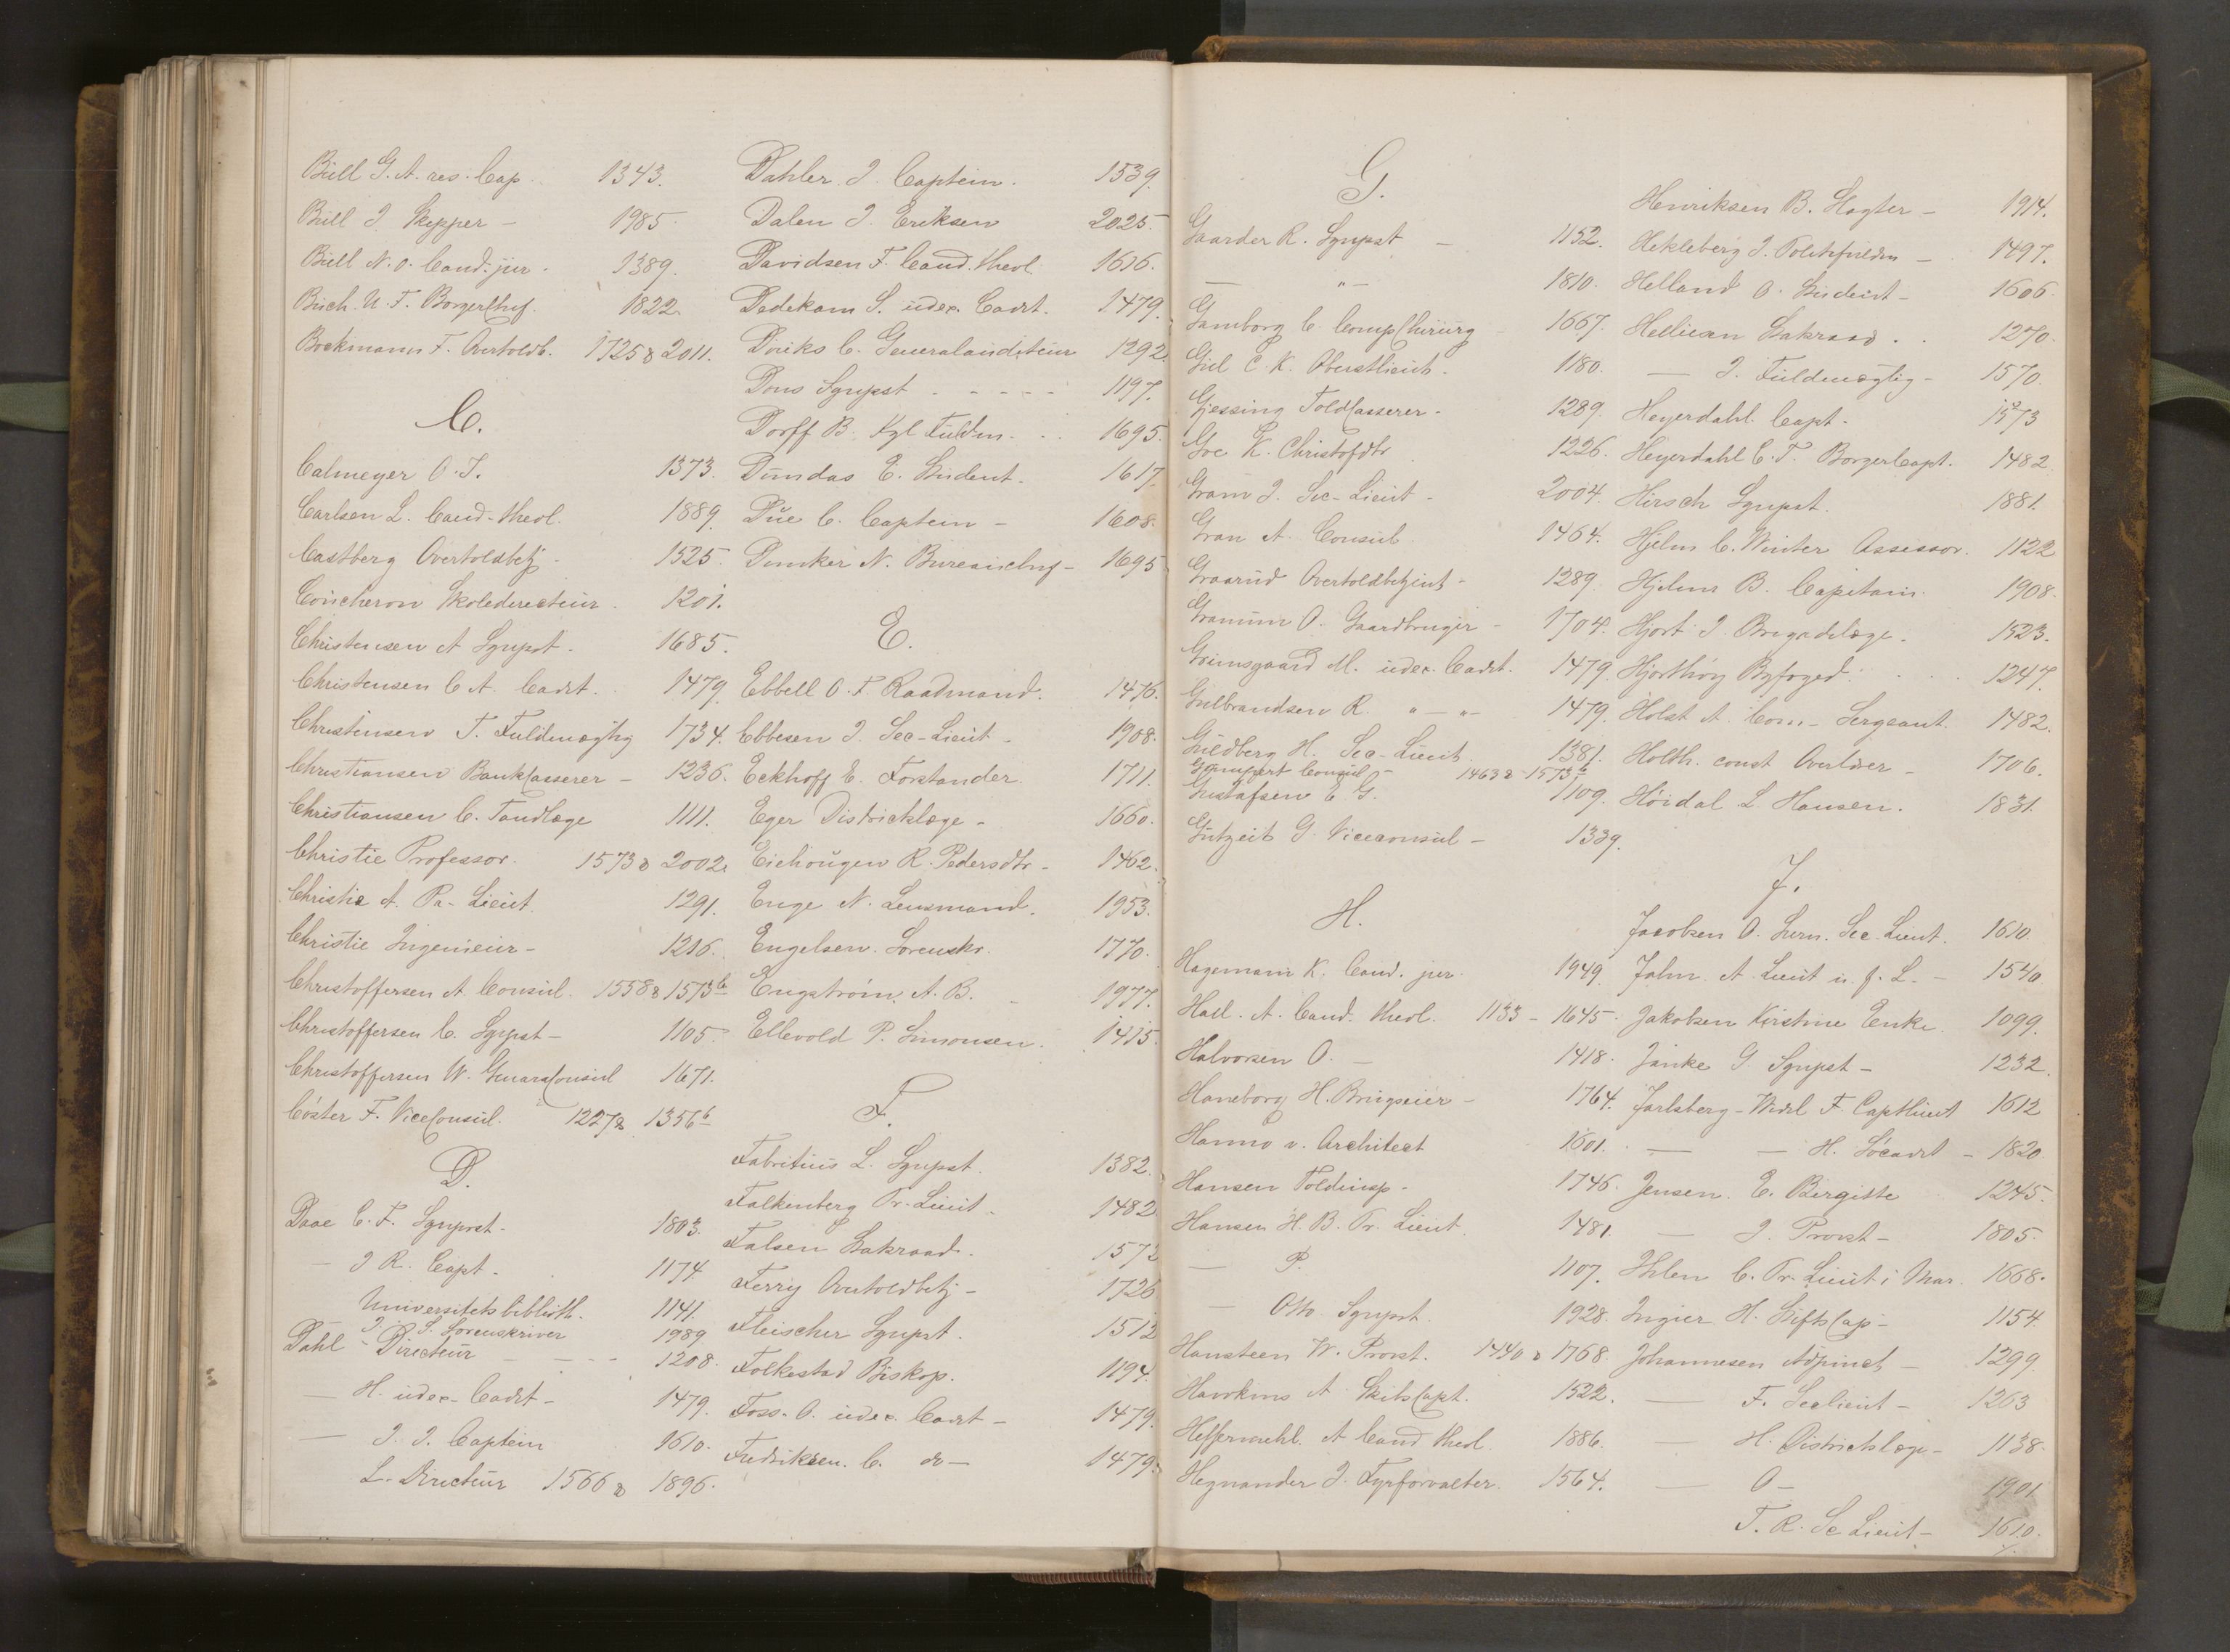 Büll G. A. res. Cap. 1343.
Büll J. Skipper - 1985
Büll N. O. Cand. jur. 1389.
Büch. U. F. 1822.
Bockmann F. Overtoldb. 1725 & 2011.
C.
Calmeyer O. J. 1373.
Carlsen L. Cand. theol. 1889.
Castberg Overtoldbetj. 1525.
Coucheron Skoledirecteur. 1201.
Christensen A Sgnpst. 1685.
Christensen C A. Cadet. 1479.
Christensen T. Fuldmægtig 1734.
Christiansen Bankcasserer - 1236.
Christiansen C. Tandlæge 1111.
Christie Professor. 1573 & 2002.
Christie A. Pr. Lieut. 1291.
Christie Ingenieur - 1216.
Christoffersen A. Consul. 1558 & 1573 b
Christoffersen C. Sgnpst - 1105.
Christoffersen W. Generalconsul 1671.
Cöster F. Viceconsul. 1227 & 1356 b
D.
Daae C. F. Sgnprst. 1803.
- J R. Capt. 1174
Universitetsbiblioth. 1141.
J. S. Sorenskriver 1989
Dahl - Directeur - - - 1208.
— H. udex. Cadet - 1479.
— J. J. Captein 1610.
L. Directeur 1566 & 1896.
Dahler J. Captein. 1539.
Dalen J. Eriksen 2025.
Davidsen F. Cand. theol. 1616.
Dedekam S. udex. Cadet. 1479.
Diriks C. Generalauditeur 1292.
Dons Sgnpst - - - - - 1197.
Dorff B. Kgl Fuldm. . . 1695.
Dundas E. Student. 1617.
Due C. Captein - 1608.
Dunker N. Bureauchef - 1695
E.
Ebbell O. F. Raadmand. 1476.
Ebbesen J. Sec-Lieut - 1908.
Eckhoff E. Forstander. 1711.
Eger Districtslæge - 1660.
Eichougen R. Pedersdtr - 1462.
Enge N. Lensmand. 1953.
Engelsen. Sorenskr. 1770.
Engström, A. B. - 1977.
Ellevold P. Simonsen. 1415.
F.
Fabritius L. Sgnpst. 1382.
Falkenberg Pr. Lieut - 1482
Falsen Statsraad. 1572
Ferry Overtoldbetj - 1726
Fleischer Sgnprst. 1512
Folkestad Biskop. 1194.
Foss. O. udex. Cadet - 1479.
Fredriksen. C. do — 1479.
G.
Gaarder R. Sgnpst - 1152.
— " — 1810.
Gamborg C. Compchirurg 1667.
Giel C. K. Oberstlieut. 1180.
Gjessing Toldcasserer - 1289.
Goe K. Christofdtr 1226.
Gram J. Sec-Lieut - 2004.
Gran A. Consul. 1464.
Graarud Overtoldbetjent - 1289.
Granum O. Gaardbruger - 1704.
Grimsgaard M. udex. Cadet. 1479.
Gulbrandsen R. " — " — 1479.
Guldberg H. Sec-Lieut. 1381.
Consul - 1463 & 1573 b
Gustafsen E. G. 1109.
Gutzeit G. Viceconsul - 1339.
H.
Hagemann K. Cand. jur. 1949.
Hall. A. Cand. theol. 1133 - 1645.
Halvorsen O. - 1418.
Haneborg H. Brugseier - 1764.
Hanno v. Architect 1601.
Hansen Toldinsp. 1746.
Hansen H. B. Pr. Lieut. 1481.
— P. 1107.
Otto Sgnprst. 1928.
Hansteen W. Provst. 1440 & 1768.
Hawkins A. Skibscapt. 1522.
Heffermehl. A Cand theol. 1886.
Hegnander J. Fyrforvalter. 1564.
Henriksen B. Slagter - 1914.
Hekleberg J. Politifuldm - 1497.
Helland O. Student - 1606
Helliesen Statsraad . . 1270.
— J. Fuldmægtig - 1570.
Heyerdahl Capt. 1573
Heyerdahl C. F. Borgercapt. 1482
Hirsch Sgnpst. 1881.
Hjelm C. Winter Assessor. 1122
Hjelm B. Capitain. 1908.
Hjort J. Brigadelæge. 1523.
Hjorthöy Byfoged. . . . 1247.
Holst A. Com. Sergeant. 1482.
Holth. const Overlærer - 1706.
Höidal L Hansen. 1831.
J.
Jacobsen O. Sec. Lieut. 1610.
Jahn A Lieut u. f. L. - 1540
Jakobsen Kirstine Enke. 1099.
Janke G Sgnpst - 1232.
Jarlsberg - Wedel F. Captlieut 1612
— — H. Söcadet - 1820.
Jensen. E. Birgitte 1245.
— J. Provst - 1805.
Ihlen C. Pr. Lieut i Mar. 1668.
Ingier H. Stiftscap - 1154.
Johannesen Adjunct - 1299
— F. Seclieut - 1263
— H. Districtslæge - 1138.
— O - 1901.
T. R. Se Lieut - 1610.